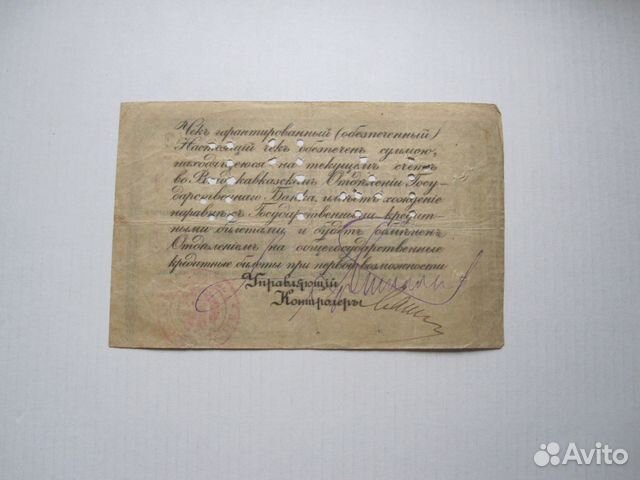 Чекъ гарантированный (обезпеченный)
Настоящiй чекъ обезпеченъ суммою,
находящеюся на текущемъ счетѣ
во Владикавказскомъ Отдѣленiи Госу-
дарственнаго Банка, имѣетъ хожденiе
наравнѣ съ Государственными кредит-
ными билетами, и будетъ обмѣненъ
Отдѣленiемъ на общегосударственные
кредитные билеты при первой возможности
Управляющiй
Контролеръ
Avito